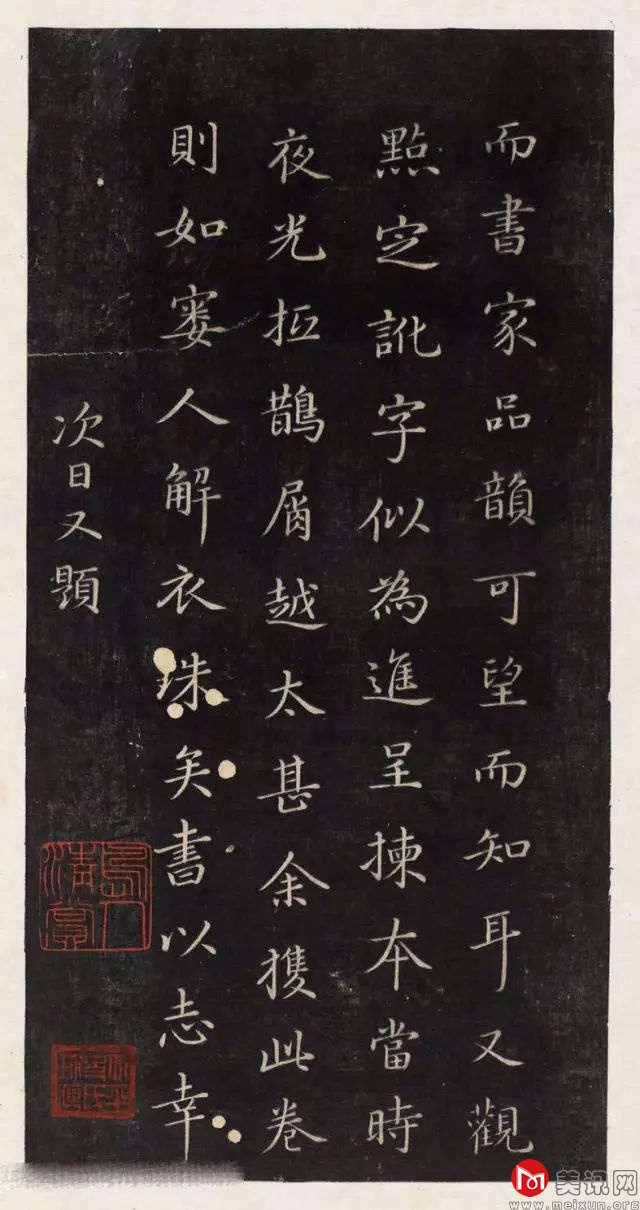 而書家品韻可望而知耳又觀
點定訛字似為進呈揀本當時
夜光抵鵲屑越太甚余獲此卷
則如窶人解衣珠矣書以志幸
次日又題
美讯网
www.meixun.org